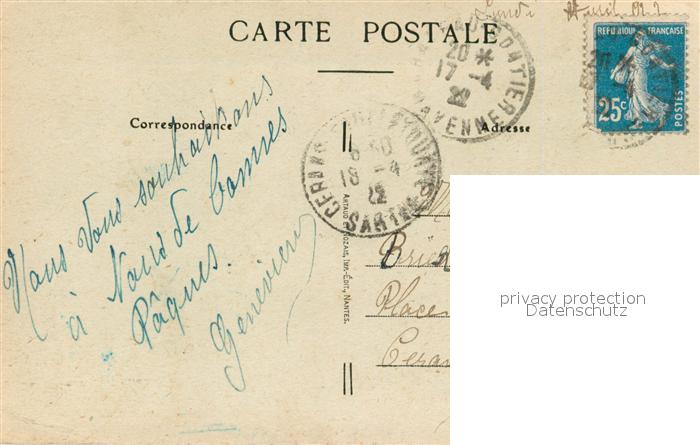 Lundi
CARTE POSTALE
20 *
17 - 4
22
MAYENNE
REPUBLIQUE FRANÇAISE
25c
POSTES
Correspondance
Adresse
18 - 4
22
SARTHE
Nous Vous souhaitons
à Nous de bonnes
Pâques.
Geneviève
ARTAUD ET NOZAIS, IMP.-ÉDIT., NANTES.
Place
privacy protection
Datenschutz